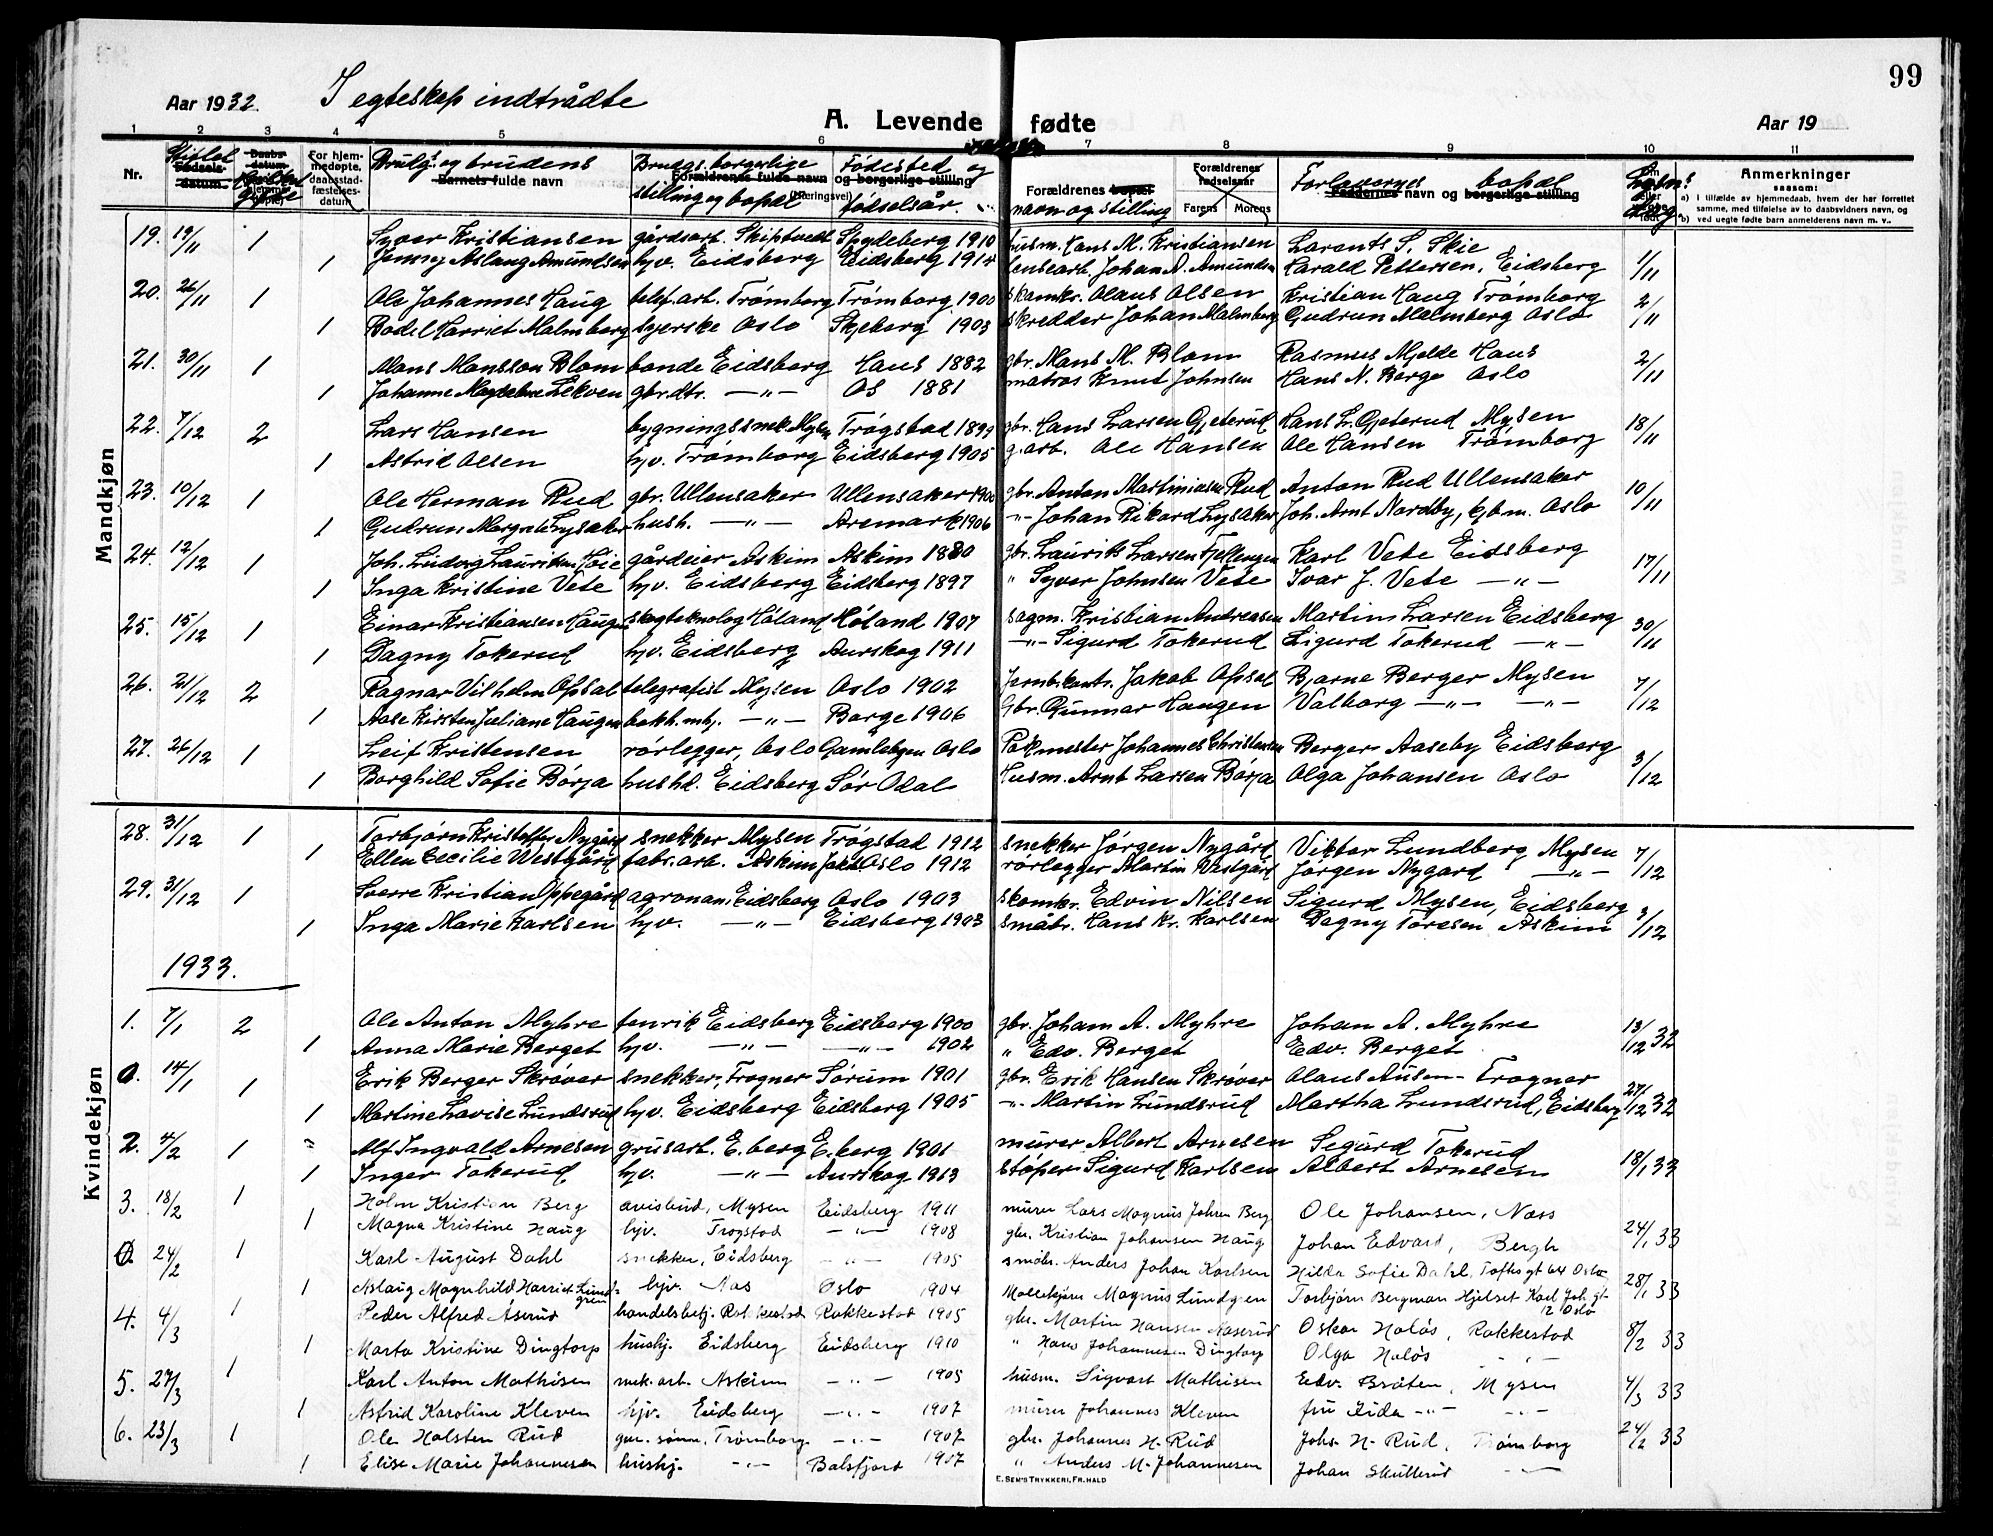 99
Aar 1932 I egteskap indtrådte
A. Levende fødte
Aar 19
1 2 3 4 5 6 7 8 9 10 11
Nr. Viglet Brudg. og brudens Brudgs. borgerlige Fødested og Forældrenes Forloverens bopæl Anmerkninger
Fødsels-datum. For hjemmedøpte, daabsstadfæstelses-datum Barnets fulde navn stilling og bopæl fødselsår. navn og stilling Farens Morens Faddernes navn og borgerlige stilling
saasom:
a) I tilfælde av hjemmedaab, hvem der har forrettet samme, med tilføielse av to daabsvidners navn, og
b) ved uegte født barn anmelderens navn m. v.
Mandkjøn
19. 19/11 1 Syver Kristiansen gårdsarb. Skiptvedt Spydeberg 1910 husm. Hans M. Kristiansen Larents S. Skie
1 Jenny Aslaug Amundsen hjv. Eidsberg Eidsberg 1914 Johan A. Amundsen Harald Pettersen, Eidsberg 1/11
20. 26/11 1 Ole Johannes Haug telef.arb. Trømborg Trømborg 1900 skomkr. Olaus Olsen Kristian Haug Trømborg 2/11
1 Bodel Harriet Malmberg syerske Oslo Skjeberg 1903 skredder Johan Malmberg Gudrun Malmberg Oslo
21. 30/11 1 Mons Monsson Blom bonde Eidsberg Haus 1882 gbr. Mons M. Blom Rasmus Mjelde Haus 2/11
1 Johanne Magdalene Lekven gbr.dtr. —"— Os 1881 matros Knut Johnsen Hans N. Berge Oslo
22. 7/12 2 Lars Hansen bygningssnek. Mysen Trøgstad 1899 gbr. Hans Larsen Gjeterud Hans L. Gjeterud Mysen 18/11
1 Astrid Olsen hjv. Trømborg Eidsberg 1905 g.arb. Ole Hansen Ole Hansen Trømborg
23. 10/12 1 Ole Herman Rud gbr. Ullensaker Ullensaker 1900 gbr. Anton Martiniusen Rud Anton Rud Ullensaker 10/11
1 Gudrun Margrete Lysaker hush. —"— Aremark 1906 -"- Johan Rikard Lysaker Joh. Arnt Nordby, kjbm. Oslo
24. 12/12 1 Joh. Ludvig Lauritsen Høie gårdeier Askim Askim 1880 gbr. Laurits Larsen Karl Vete Eidsberg 17/11
1 Inga Kristine Vete hjv. Eidsberg Eidsberg 1897 " Syver Johnsen Vete Ivar J. Vete —"—
25. 15/12 1 Einar Kristiansen Haugen skogteknolog Høland Høland 1907 sagm. Kristian Andreasen Martin Larsen Eidsberg 30/11
1 Dagny Tokerud hjv. Eidsberg Aurskog 1911 —"— Sigurd Tokerud Sigurd Tokerud —"—
26. 21/12 2 Ragnar Vilhelm Opsal telegrafist Mysen Oslo 1902 Jernb.kontr. Jakob Opsal Bjarne Berger Mysen 7/12
1 Aase Kirsten Juliane Haugen bokh. mhj. —"— Borge 1906 Gbr. Gunnar Haugen Valborg —"— —"—
27. 26/12 1 Leif Kristensen rørlegger, Oslo Gamlebyen Oslo Pakmester Johannes Christensen Berger Aaseby Eidsberg 3/12
1 Borghild Sofie Børja hushd. Eidsberg Sør Odal Husm. Arnt Larsen Børja Olga Johansen Oslo
28. 31/12 1 Torbjørn Kristoffer Nygård snekker Mysen Trøgstad 1912 snekker Jørgen Nygård Viktor Lundberg Mysen 7/12
1 Ellen Cecilie Westgård fabr.arb. Askim Oslo 1912 rørlegger Martin Westgård Jørgen Nygard —"—
29. 31/12 1 Sverre Kristian Oppegård agronom Eidsberg Oslo 1903 skomkr. Edvin Nilsen Sigurd Mysen, Eidsberg
1 Inga Marie Karlsen hjv. —"— Eidsberg 1903 småbr. Hans Kr. Karlsen Dagny Toresen Askim 3/12
1933.
Kvindekjøn
1. 7/1 2 Ole Anton Myhre fenrik Eidsberg Eidsberg 1900 gbr. Johan A. Myhre Johan A. Myhre 13/12 32
1 Anna Marie Berget hjv. —"— —"— 1902 " Edv. Berget Edv. Berget
0. 14/1 1 Erik Berger Skrøver snekker, Frogner Sørum 1901 gbr. Erik Hansen Skrøver Olaus Ausen Frogner
1 Martine Lovise Lundsrud hjv. Eidsberg Eidsberg 1905 -"- Martin Lundsrud Martha Lundsrud, Eidsberg 27/12 32
2. 4/2 1 Alf Ingvald Arnesen grusarb. E.berg E.berg 1901 murer Albert Arnesen Sigurd Tokerud
1 Inger Tokerud hjv. —"— Aurskog 1913 støper Sigurd Karlsen Albert Arnesen 18/1 33
3. 18/2 1 Holm Kristian Berg avisbud, Mysen Eidsberg 1911 murer Lars Magnus Johsen Berg Ole Johansen, Næss
1 Magna Kristine Haug hjv. Trøgstad —"— 1908 gbr. Kristian Johansen Haug Johan Edvard, Bergh 24/1 33
0. 24/2 1 Karl August Dahl snekker, Eidsberg —"— 1905 småbr. Anders Johan Karlsen Hilda Sofie Dahl, Toftesgt 64 Oslo
1 Aslaug Magnhild Harriet Lundgren hjv. Aas Oslo 1904 Magnus Lundgren Torbjørn Bergman Hjelset Karl Joh. gt. 12 Oslo 28/1 33
4. 4/3 1 Peder Alfred Åserud handelsbetj. Rakkestad Rakkestad 1905 gbr. Martin Hansen Aaserud Oskar Holøs, Rakkestad
1 Marta Kristine Dingtorp hushj. Eidsberg Eidsberg 1910 " Hans Johannesen Dingtorp Olga Holøs —"— 8/2 33
5. 27/3 1 Karl Anton Mathisen mek.arb. Askim —"— 1905 husm. Sigvart Mathisen Edv. Bråten, Mysen 4/3 33
1 Astrid Karoline Kleven hjv. Eidsberg —"— 1907 murer Johannes Kleven fru Lida —"— —"—
6. 23/3 1 Ole Halsten Rud gbr. sønn, Trømborg —"— 1907 gbr. Johannes H. Rud Johs. H. Rud, Trømborg 24/2 33
1 Elise Marie Johannesen hushj. —"— Balsfjord 1907 " Anders M. Johannesen Johan Skullerud —"—
E. SEM'S TRYKKERI, FR.HALD